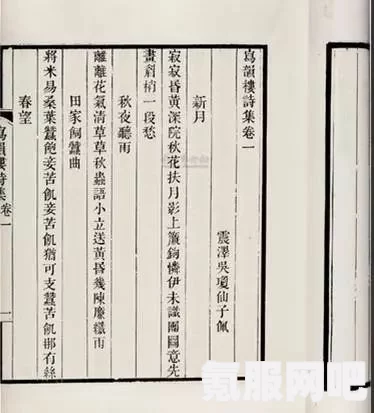 寫韻樓詩集卷一
震澤吳瓊仙子佩
新月
寂寂昏黃深院秋花扶月影上簾鉤憐伊未識團圓意先
畫斜梢一段愁
秋夜聽雨
離離花氣清草草秋蟲語小立送黃昏幾陳廉纖雨
田家飼蠶曲
將米易桑葉蠶飽妾苦飢妾苦飢猶可支蠶苦飢那有絲
春望
寫韻樓詩集卷一
一
氪服网吧